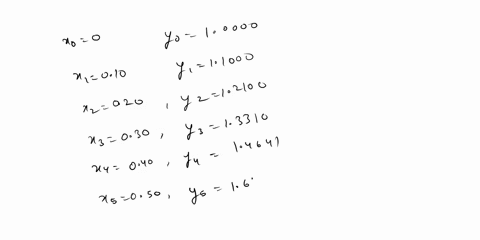 x₀=0 y₀=1.0000
x₁=0.10 y₁=1.1000
x₂=0.20 , y₂=1.2100
x₃=0.30 , y₃=1.3310
x₄=0.40 , y₄= 1.4641
x₅=0.50 , y₅ = 1.6